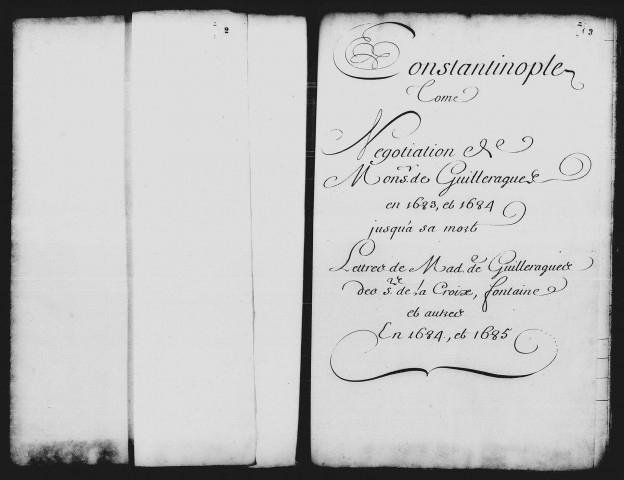 2
3
Constantinople
Tome
Negotiation de
Monsr. de Guilleragues
en 1683, et 1684
jusqu'à sa mort
Lettres de Made. de Guilleragues
des Srs. de la Croix, fontaine
et autres
En 1684, et 1685